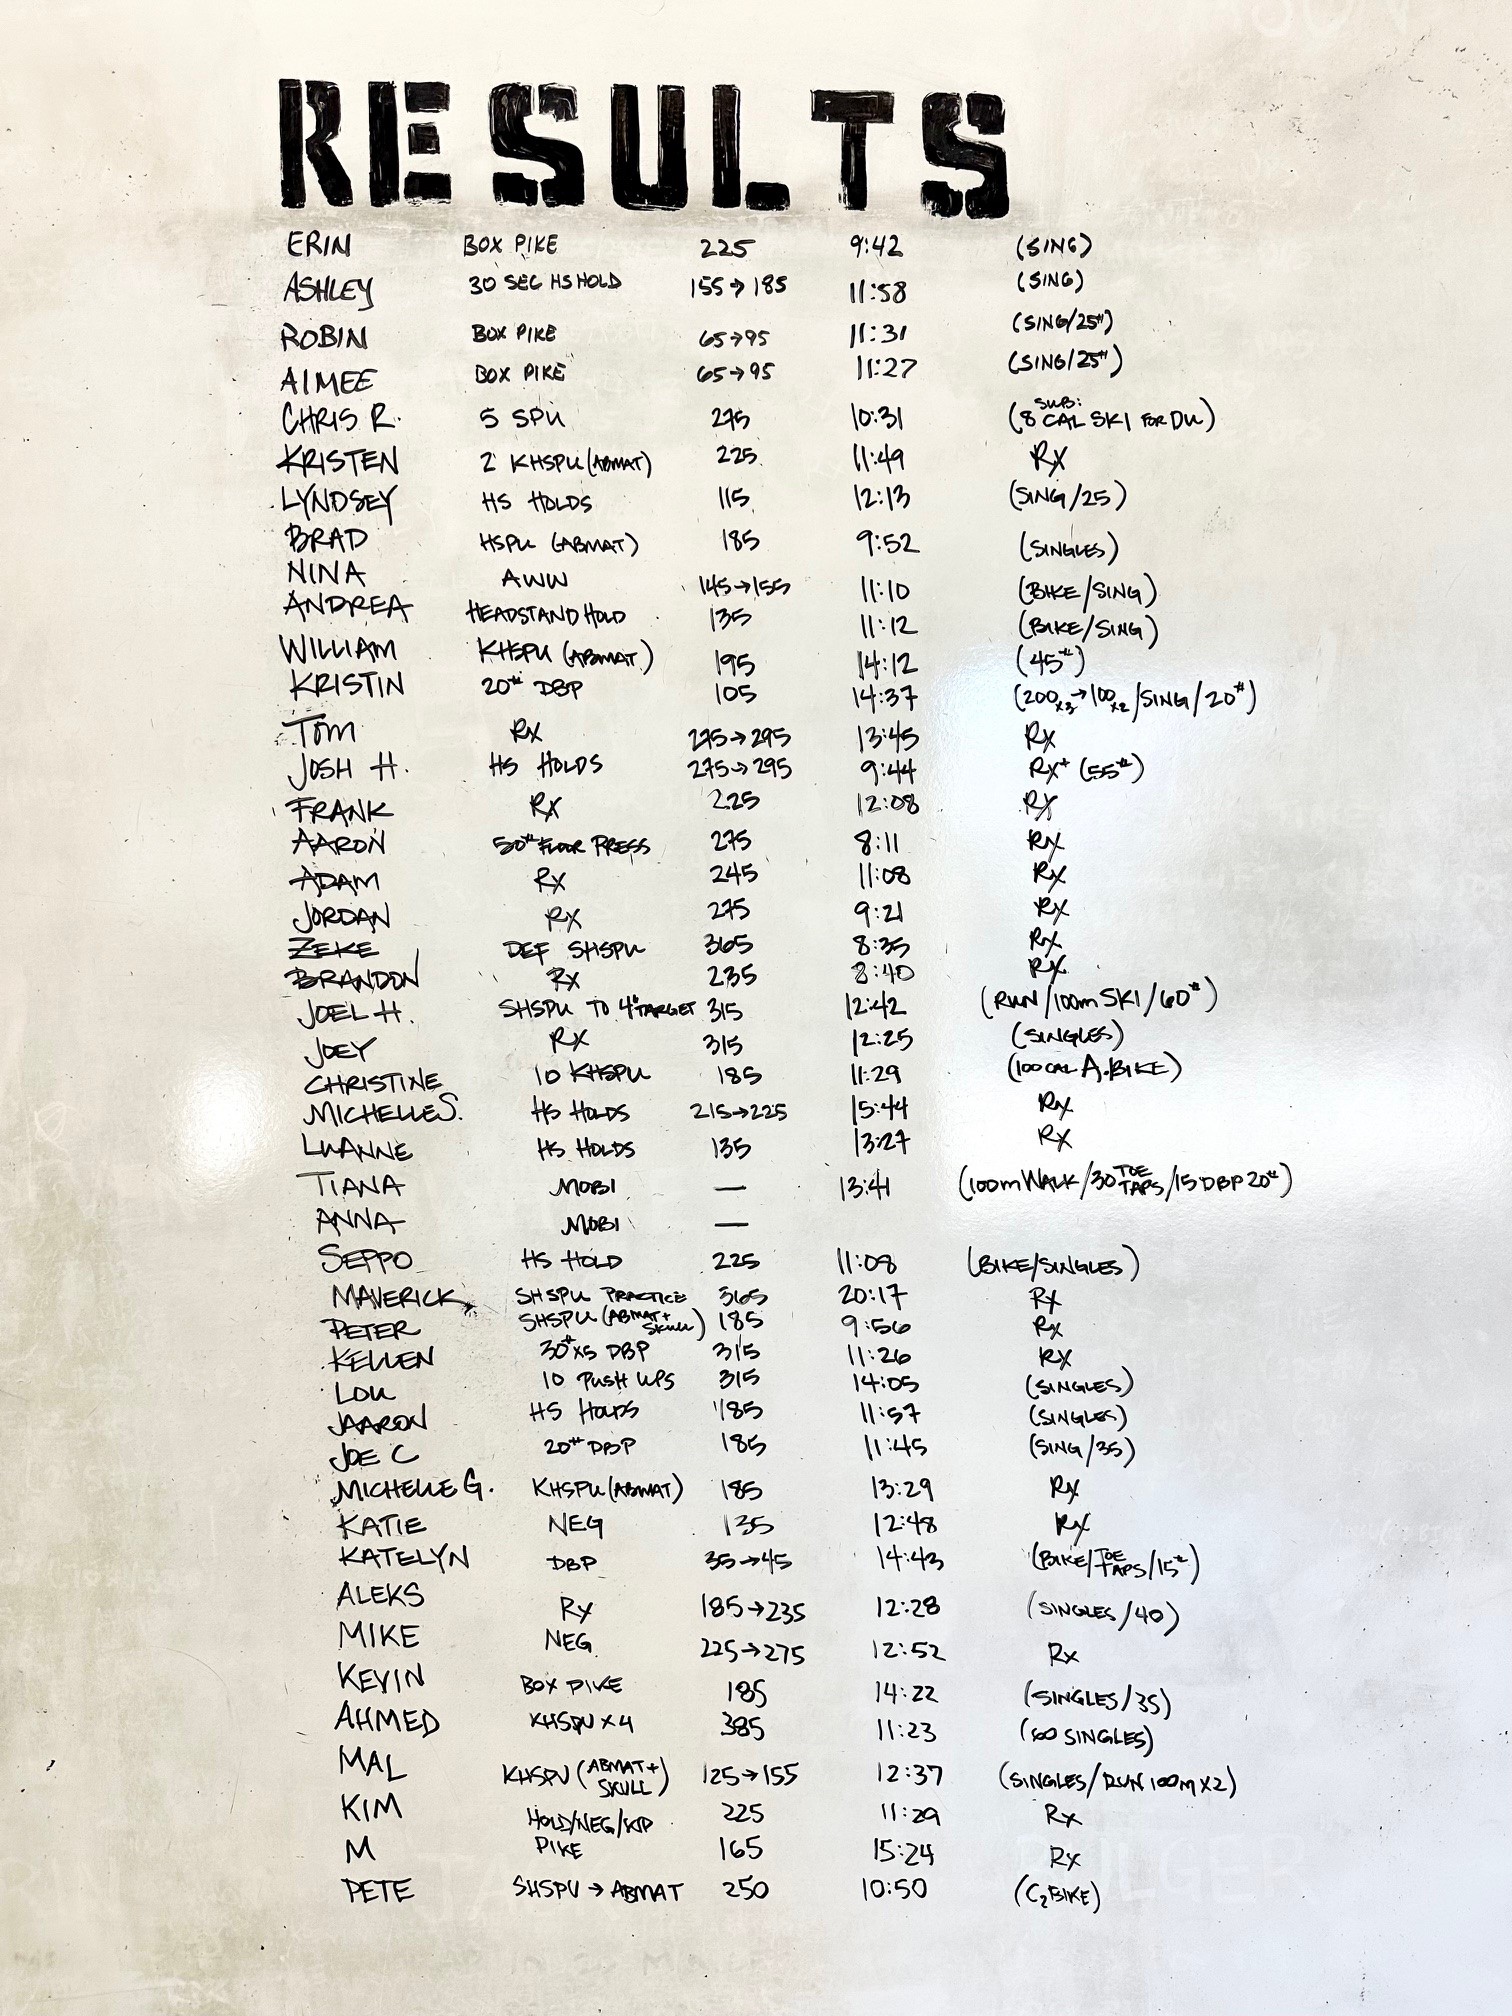 RESULTS
ERIN BOX PIKE 225 9:42 (SING)
ASHLEY 30 SEC HS HOLD 155→185 11:58 (SING)
ROBIN BOX PIKE 65→95 11:31 (SING/25#)
AIMEE BOX PIKE 65→95 11:27 (SING/25#)
CHRIS R. 5 SPU 275 10:31 (SUB: 8 CAL SKI FOR DU)
KRISTEN 2 KHSPU (ABMAT) 225 11:49 Rx
LYNDSEY HS HOLDS 115 12:13 (SING/25)
BRAD HSPU (ABMAT) 185 9:52 (SINGLES)
NINA AWW 145→155 11:10 (BIKE/SING)
ANDREA HEADSTAND HOLD 135 11:12 (BIKE/SING)
WILLIAM KHSPU (ABMAT) 195 14:12 (45#)
KRISTIN 20# DBP 105 14:37 (200x3→100x2/SING/20#)
TOM Rx 275→295 13:45 Rx
JOSH H. HS HOLDS 275→295 9:44 Rx+ (55#)
FRANK Rx 225 12:08 Rx
AARON 50# FLOOR PRESS 275 8:11 Rx
ADAM Rx 245 11:08 Rx
JORDAN Rx 275 9:21 Rx
ZEKE DEF SHSPU 365 8:35 Rx
BRANDON Rx 235 8:40 Rx
JOEL H. SHSPU TO 4" TARGET 315 12:42 (RUN/100m SKI/60#)
JOEY Rx 315 12:25 (SINGLES)
CHRISTINE 10 KHSPU 185 11:29 (100 CAL A.BIKE)
MICHELLE S. HS HOLDS 215→225 15:44 Rx
LUANNE HS HOLDS 135 13:27 Rx
TIANA MOBI — 13:41 (100m WALK/30 TOE TAPS/15 DBP 20#)
ANNA MOBI —
SEPPO HS HOLD 225 11:08 (BIKE/SINGLES)
MAVERICK SHSPU PRACTICE 365 20:17 Rx
PETER SHSPU (ABMAT+ SKULL) 185 9:56 Rx
KELLEN 30#x5 DBP 315 11:26 Rx
LOU 10 PUSH UPS 315 14:05 (SINGLES)
JAARON HS HOLDS 185 11:57 (SINGLES)
JOE C 20# DBP 185 11:45 (SING/35)
MICHELLE G. KHSPU (ABMAT) 185 13:29 Rx
KATIE NEG 135 12:48 Rx
KATELYN DBP 35→45 14:43 (BIKE/TOE TAPS/15#)
ALEKS Rx 185→235 12:28 (SINGLES/40)
MIKE NEG 225→275 12:52 Rx
KEVIN BOX PIKE 185 14:22 (SINGLES/35)
AHMED KHSPU x4 385 11:23 (60 SINGLES)
MAL KHSPU (ABMAT+ SKULL) 125→155 12:37 (SINGLES/RUN 100M X2)
KIM HOLD/NEG/KIP 225 11:29 Rx
M PIKE 165 15:24 Rx
PETE SHSPU → ABMAT 250 10:50 (C2 BIKE)